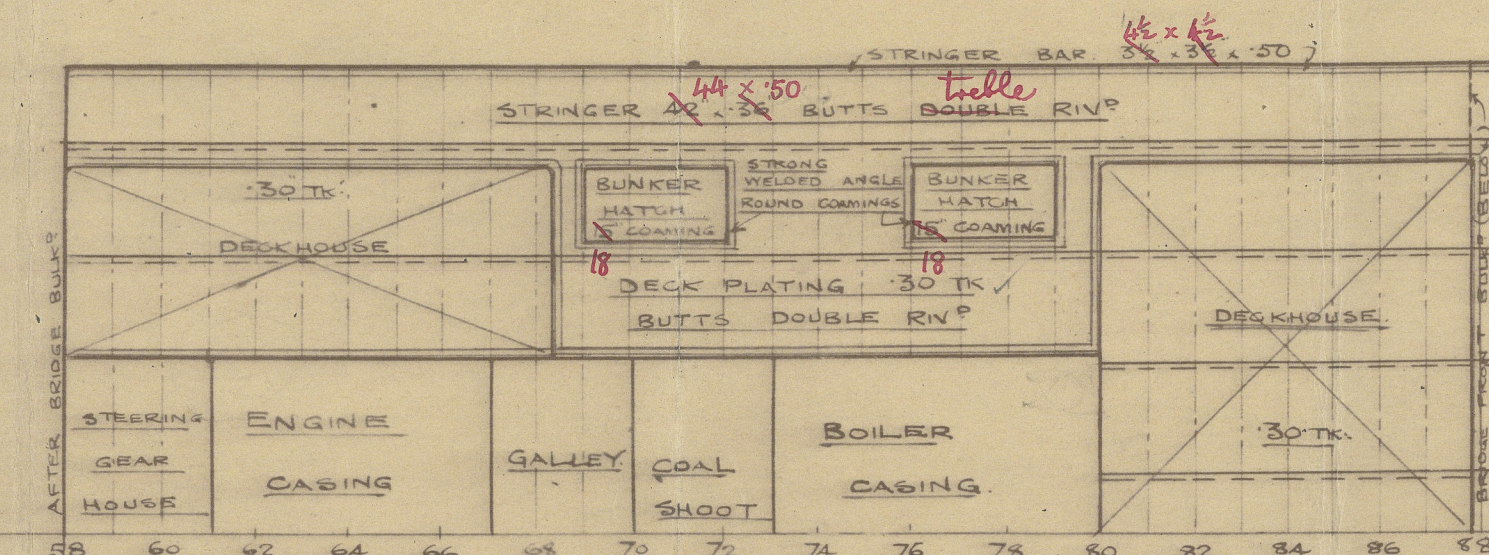 4½ x 4½
STRINGER BAR. 3½ x 3½ x .50
44 x .50 treble
STRINGER 42 x .36 BUTTS DOUBLE RIVD
.30 TK.
DECKHOUSE
BUNKER
HATCH
15" COAMING
18
STRONG
WELDED ANGLE
ROUND COAMINGS
BUNKER
HATCH
15" COAMING
18
DECK PLATING .30 TK ✓
BUTTS DOUBLE RIVD
DECKHOUSE.
.30 TK.
AFTER BRIDGE BULKD.
BRIDGE FRONT BULKD (BELOW)
STEERING
GEAR
HOUSE
ENGINE
CASING
GALLEY.
COAL
SHOOT
BOILER
CASING.
58 60 62 64 66 68 70 72 74 76 78 80 82 84 86 88